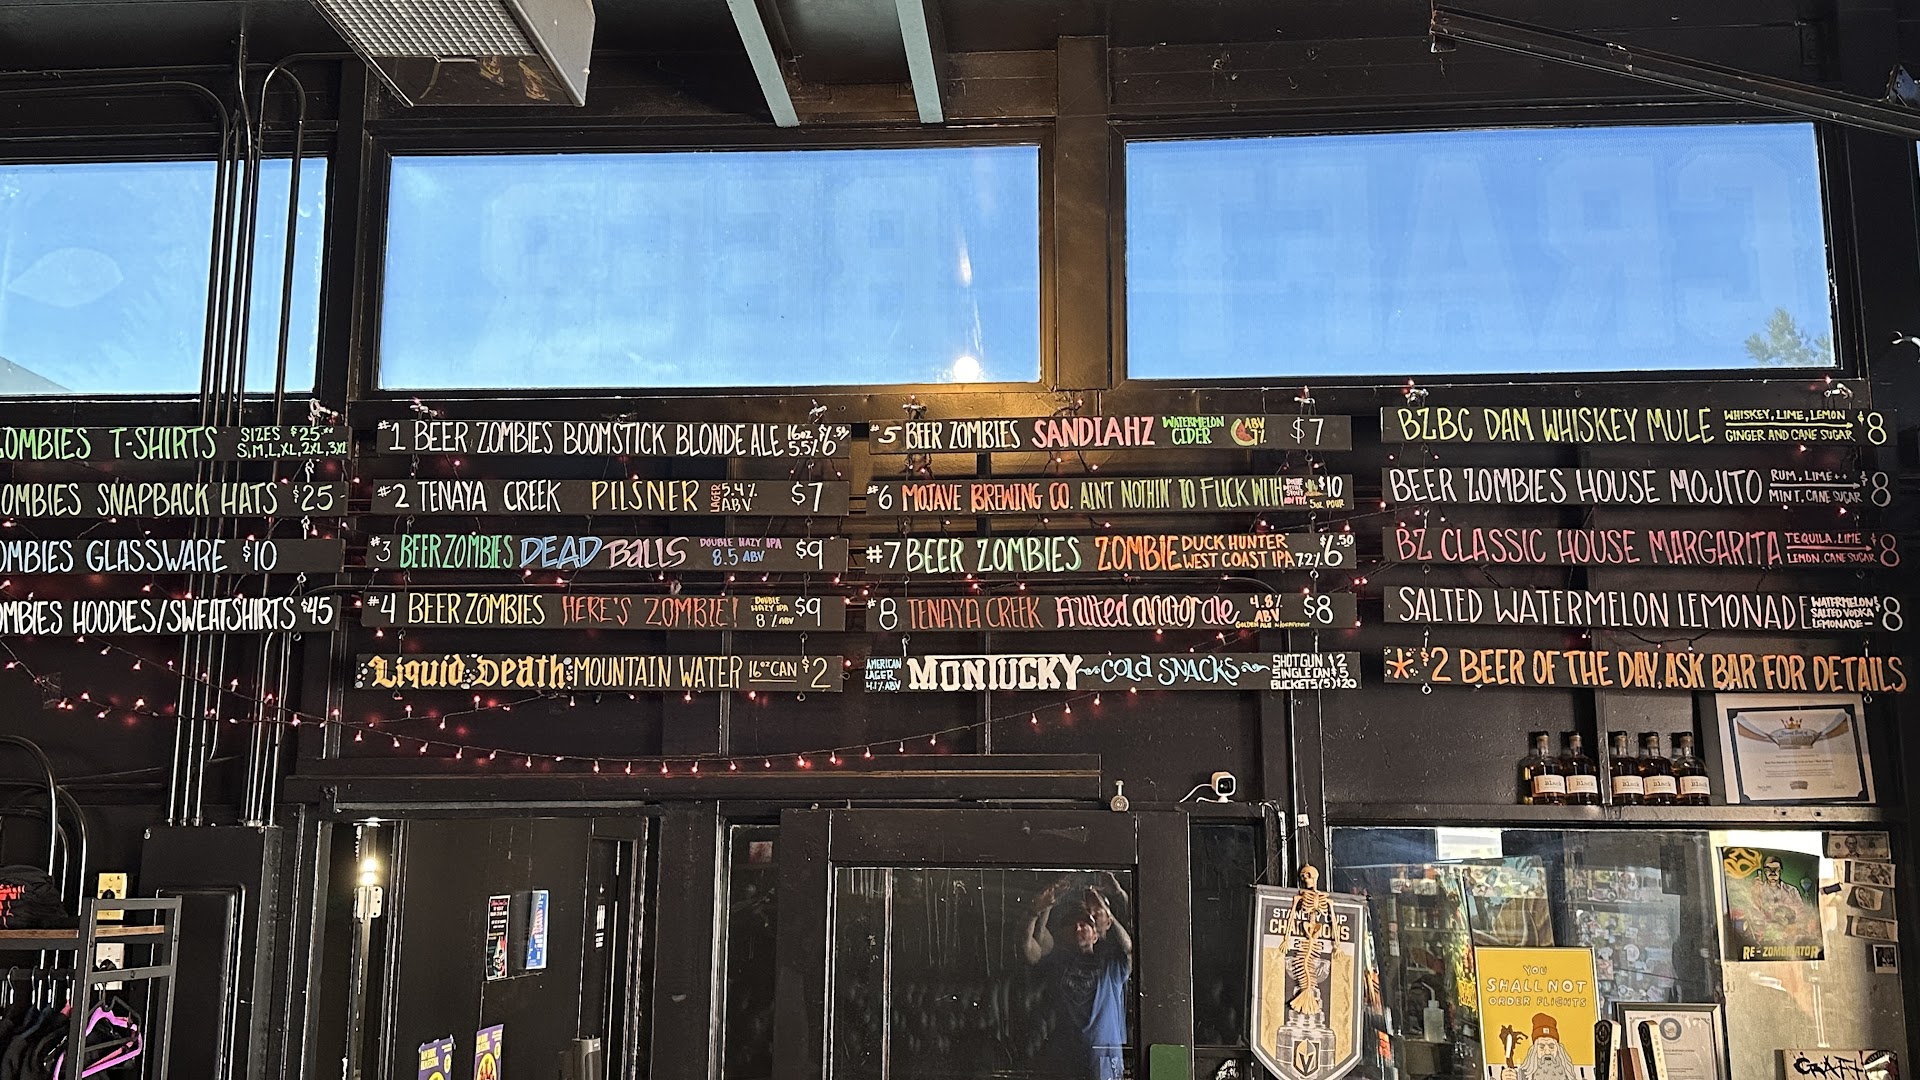 CRAFT
BEER
ZOMBIES T-SHIRTS SIZES $25.00
S, M, L, XL, 2XL, 3XL
ZOMBIES SNAPBACK HATS $25-
ZOMBIES GLASSWARE $10
ZOMBIES HOODIES/SWEATSHIRTS $45
#1 BEER ZOMBIES BOOMSTICK BLONDE ALE 16oz 5.5%
#2 TENAYA CREEK PILSNER LAGER 5.4% ABV. $7
#3 BEER ZOMBIES DEAD BALLS DOUBLE HAZY IPA 8.5 ABV $9
#4 BEER ZOMBIES HERE'S ZOMBIE! DOUBLE HAZY IPA 8% ABV $9
Liquid Death MOUNTAIN WATER 16oz CAN $2
#5 BEER ZOMBIES SANDIAHZ WATERMELON CIDER ABV 7% $7
#6 MOJAVE BREWING CO. AINT NOTHIN' TO FUCK WITH $10 5oz. POUR
#7 BEER ZOMBIES ZOMBIE DUCK HUNTER WEST COAST IPA 7.2% $6.50
#8 TENAYA CREEK Fruited aviator ale, 4.8% ABV $8
AMERICAN LAGER 4.1% ABV MONTUCKY COLD SNACKS SHOTGUN $2
SINGLE CAN $5
BUCKETS (5) $20
BZBC DAM WHISKEY MULE WHISKEY, LIME, LEMON GINGER AND CANE SUGAR $8
BEER ZOMBIES HOUSE MOJITO RUM, LIME++ MINT, CANE SUGAR $8
BZ CLASSIC HOUSE MARGARITA TEQUILA, LIME LEMON, CANE SUGAR $8
SALTED WATERMELON LEMONADE WATERMELON SALTED VODKA LEMONADE- $8
* $2 BEER OF THE DAY, ASK BAR FOR DETAILS
Black
Black
Black
STANLEY CUP
CHAMPIONS
YOU
SHALL NOT
ORDER FLIGHTS
RE-ZOMBINATOR
CRAFT